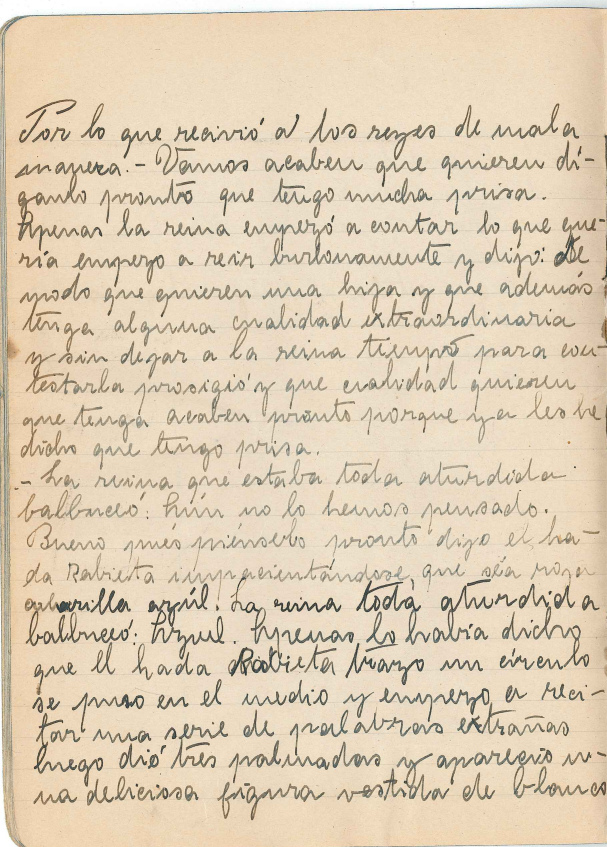 Por lo que recivió a los reyes de mala
manera. - Vamos acaben que quieren dí-
ganlo prontó que tengo mucha prisa.
Apenas la reina empezó a contar lo que que-
ría empezo a reir burlonamente y dijo: De
modo que quieren una hija y que además
tenga alguna cualidad extraordinaria
y sin dejar a la reina tiempó para con-
testarla prosigió y que cualidad quieren
que tenga acaben pronto porque ya les he
dicho que tengo prisa.
- La reina que estaba toda aturdida
balbuceó: Aún no lo hemos pensado.
Bueno pués piénselo pronto dijo el ha-
da Rabieta impacientándose, que séa roja
amarilla azúl. La reina toda aturdida
balbuceó: Azul. Apenas lo había dicho
que el hada Rabieta trazo un círculo
se puso en el medio y empezo a reci-
tar una serie de palabras extrañas
luego dió tres palmadas y aparecio u-
na deliciosa figura vestida de blanco